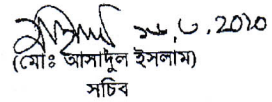 ২৯.৩.2020
(মোঃ আসাদুল ইসলাম)
সচিব